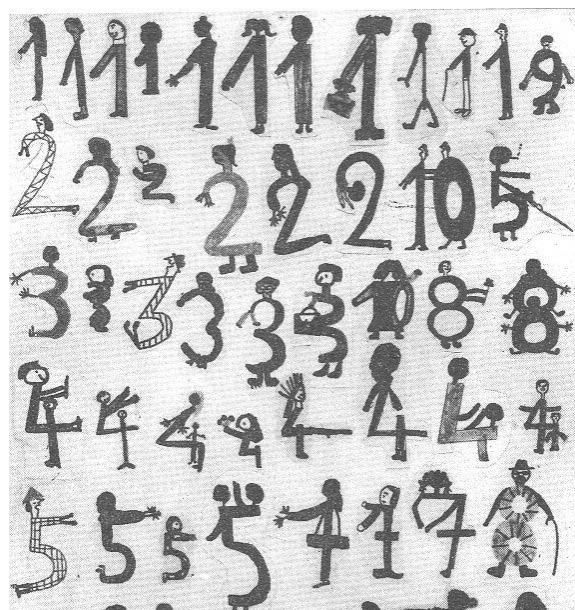 1 1 1 1 1 1 1 1 1 1 1 9
2 2 2 2 2 2 10 5
3 3 3 3 3 3 10 8 8
4 4 4 4 4 4 4 4
5 5 5 5 7 7 7 8